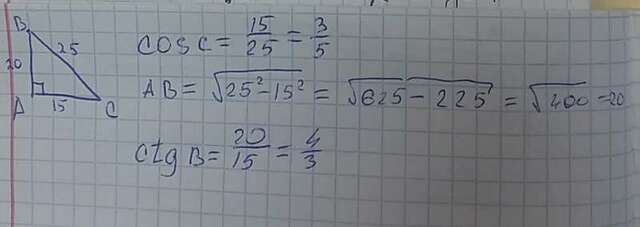 B
25
20
A
15
C
cos C = 15/25 = 3/5
AB = √(25² - 15²) = √(625 - 225) = √400 = 20
ctg B = 20/15 = 4/3